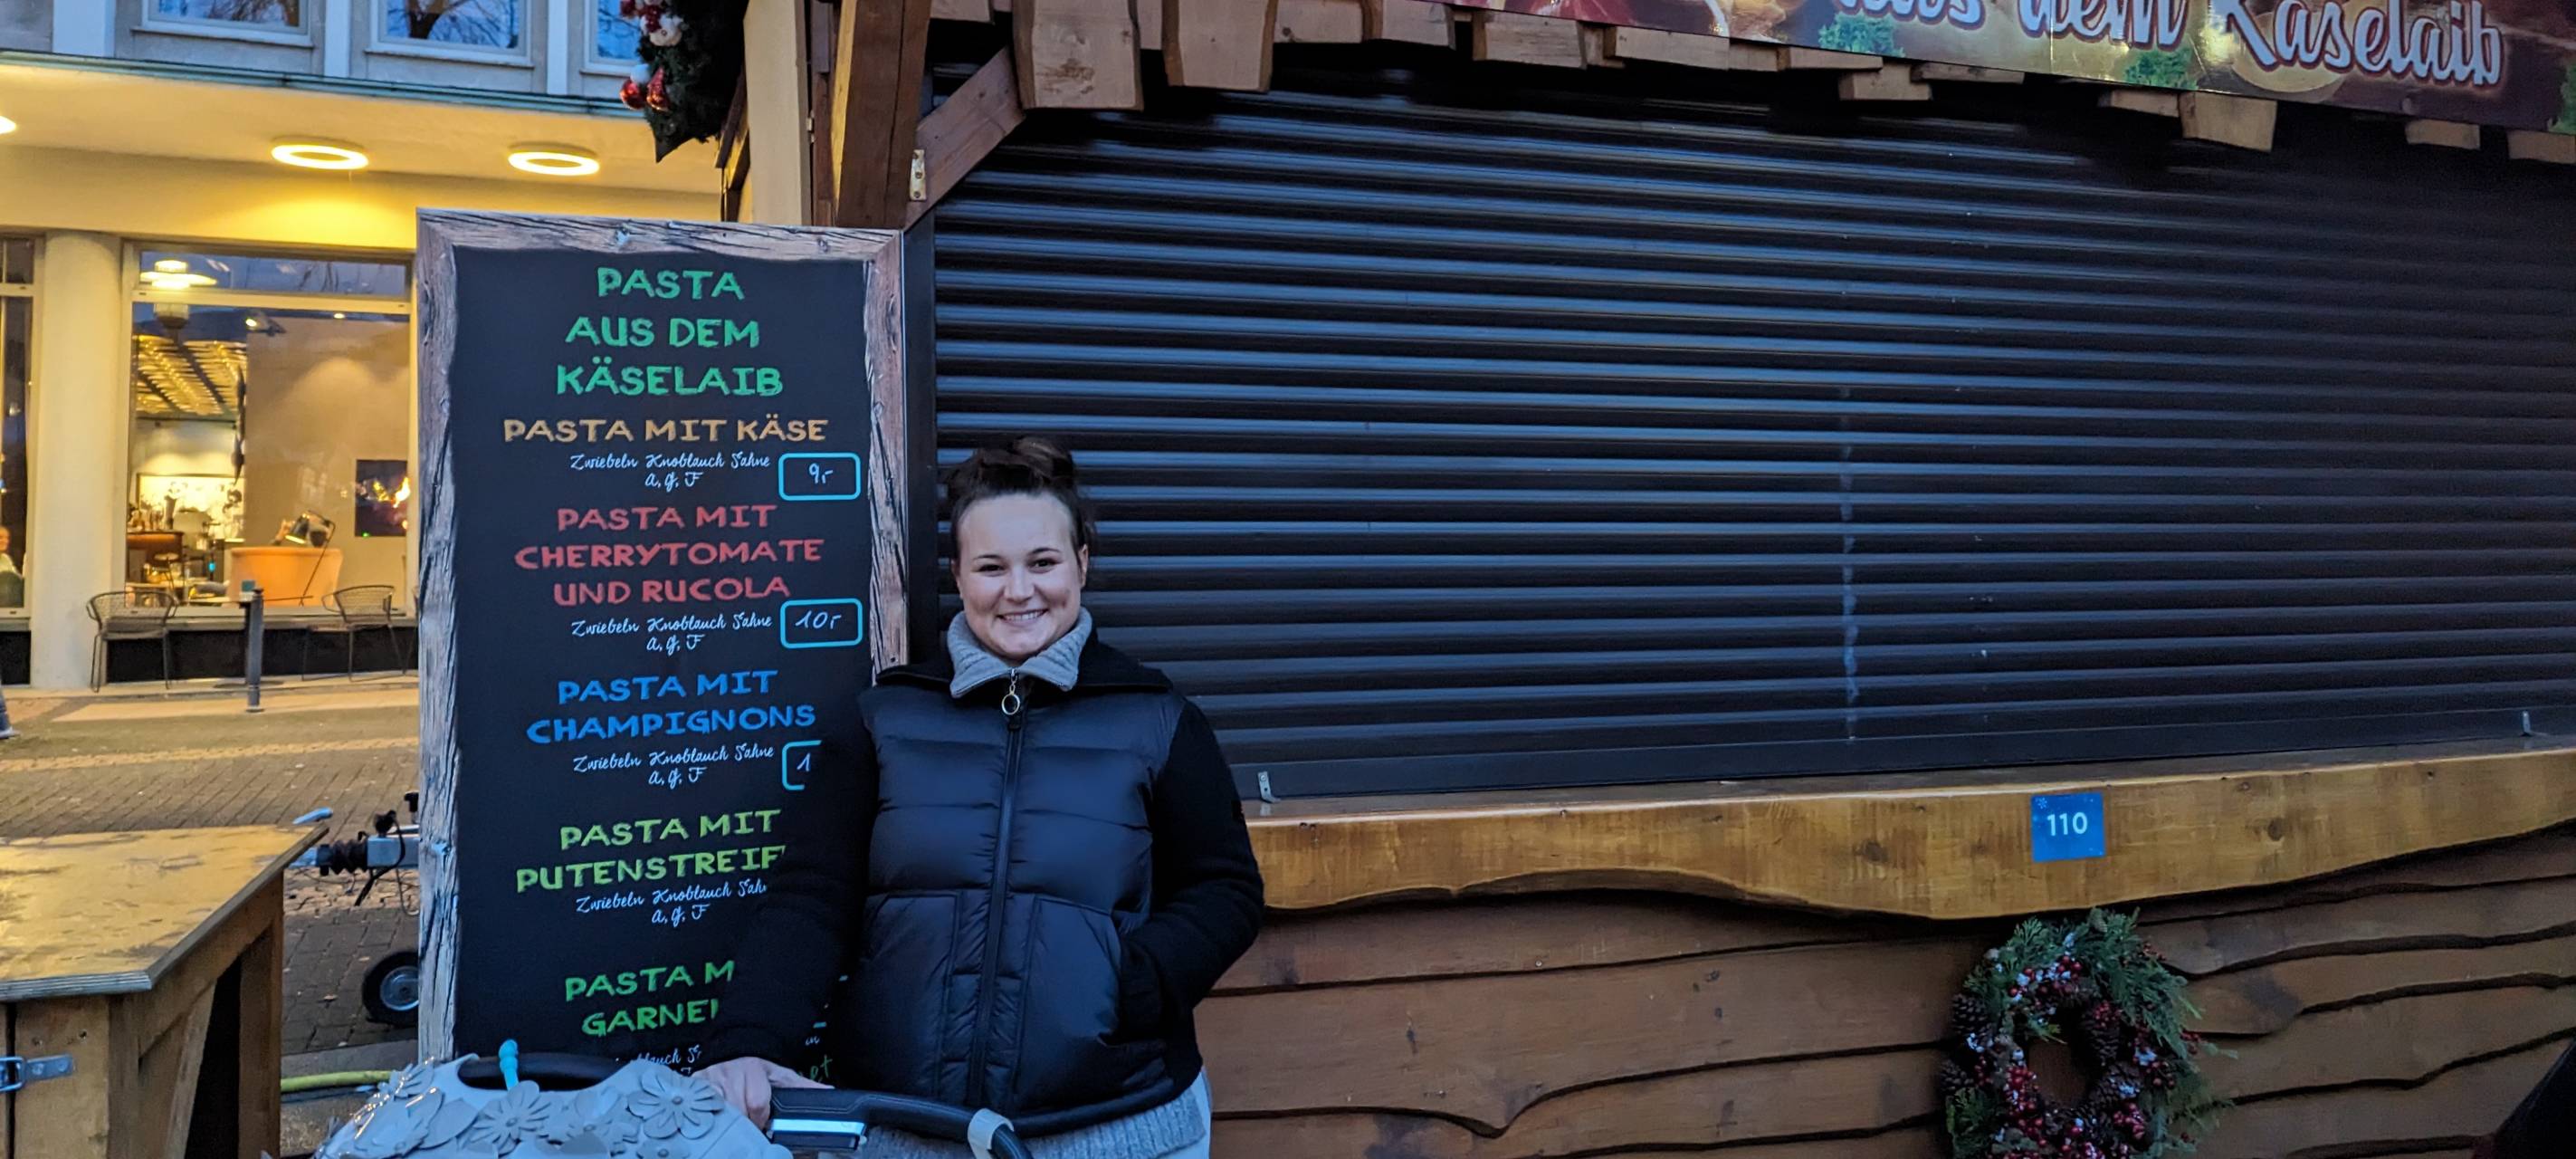 aus dem Käselaib
PASTA
AUS DEM
KÄSELAIB
PASTA MIT KÄSE
Zwiebeln Knoblauch Sahne
A, G, F
9,-
PASTA MIT
CHERRYTOMATE
UND RUCOLA
Zwiebeln Knoblauch Sahne
A, G, F
10,-
PASTA MIT
CHAMPIGNONS
Zwiebeln Knoblauch Sahne
A, G, F
1
PASTA MIT
PUTENSTREIF
Zwiebeln Knoblauch Sah
A, G, F
PASTA M
GARNE
110